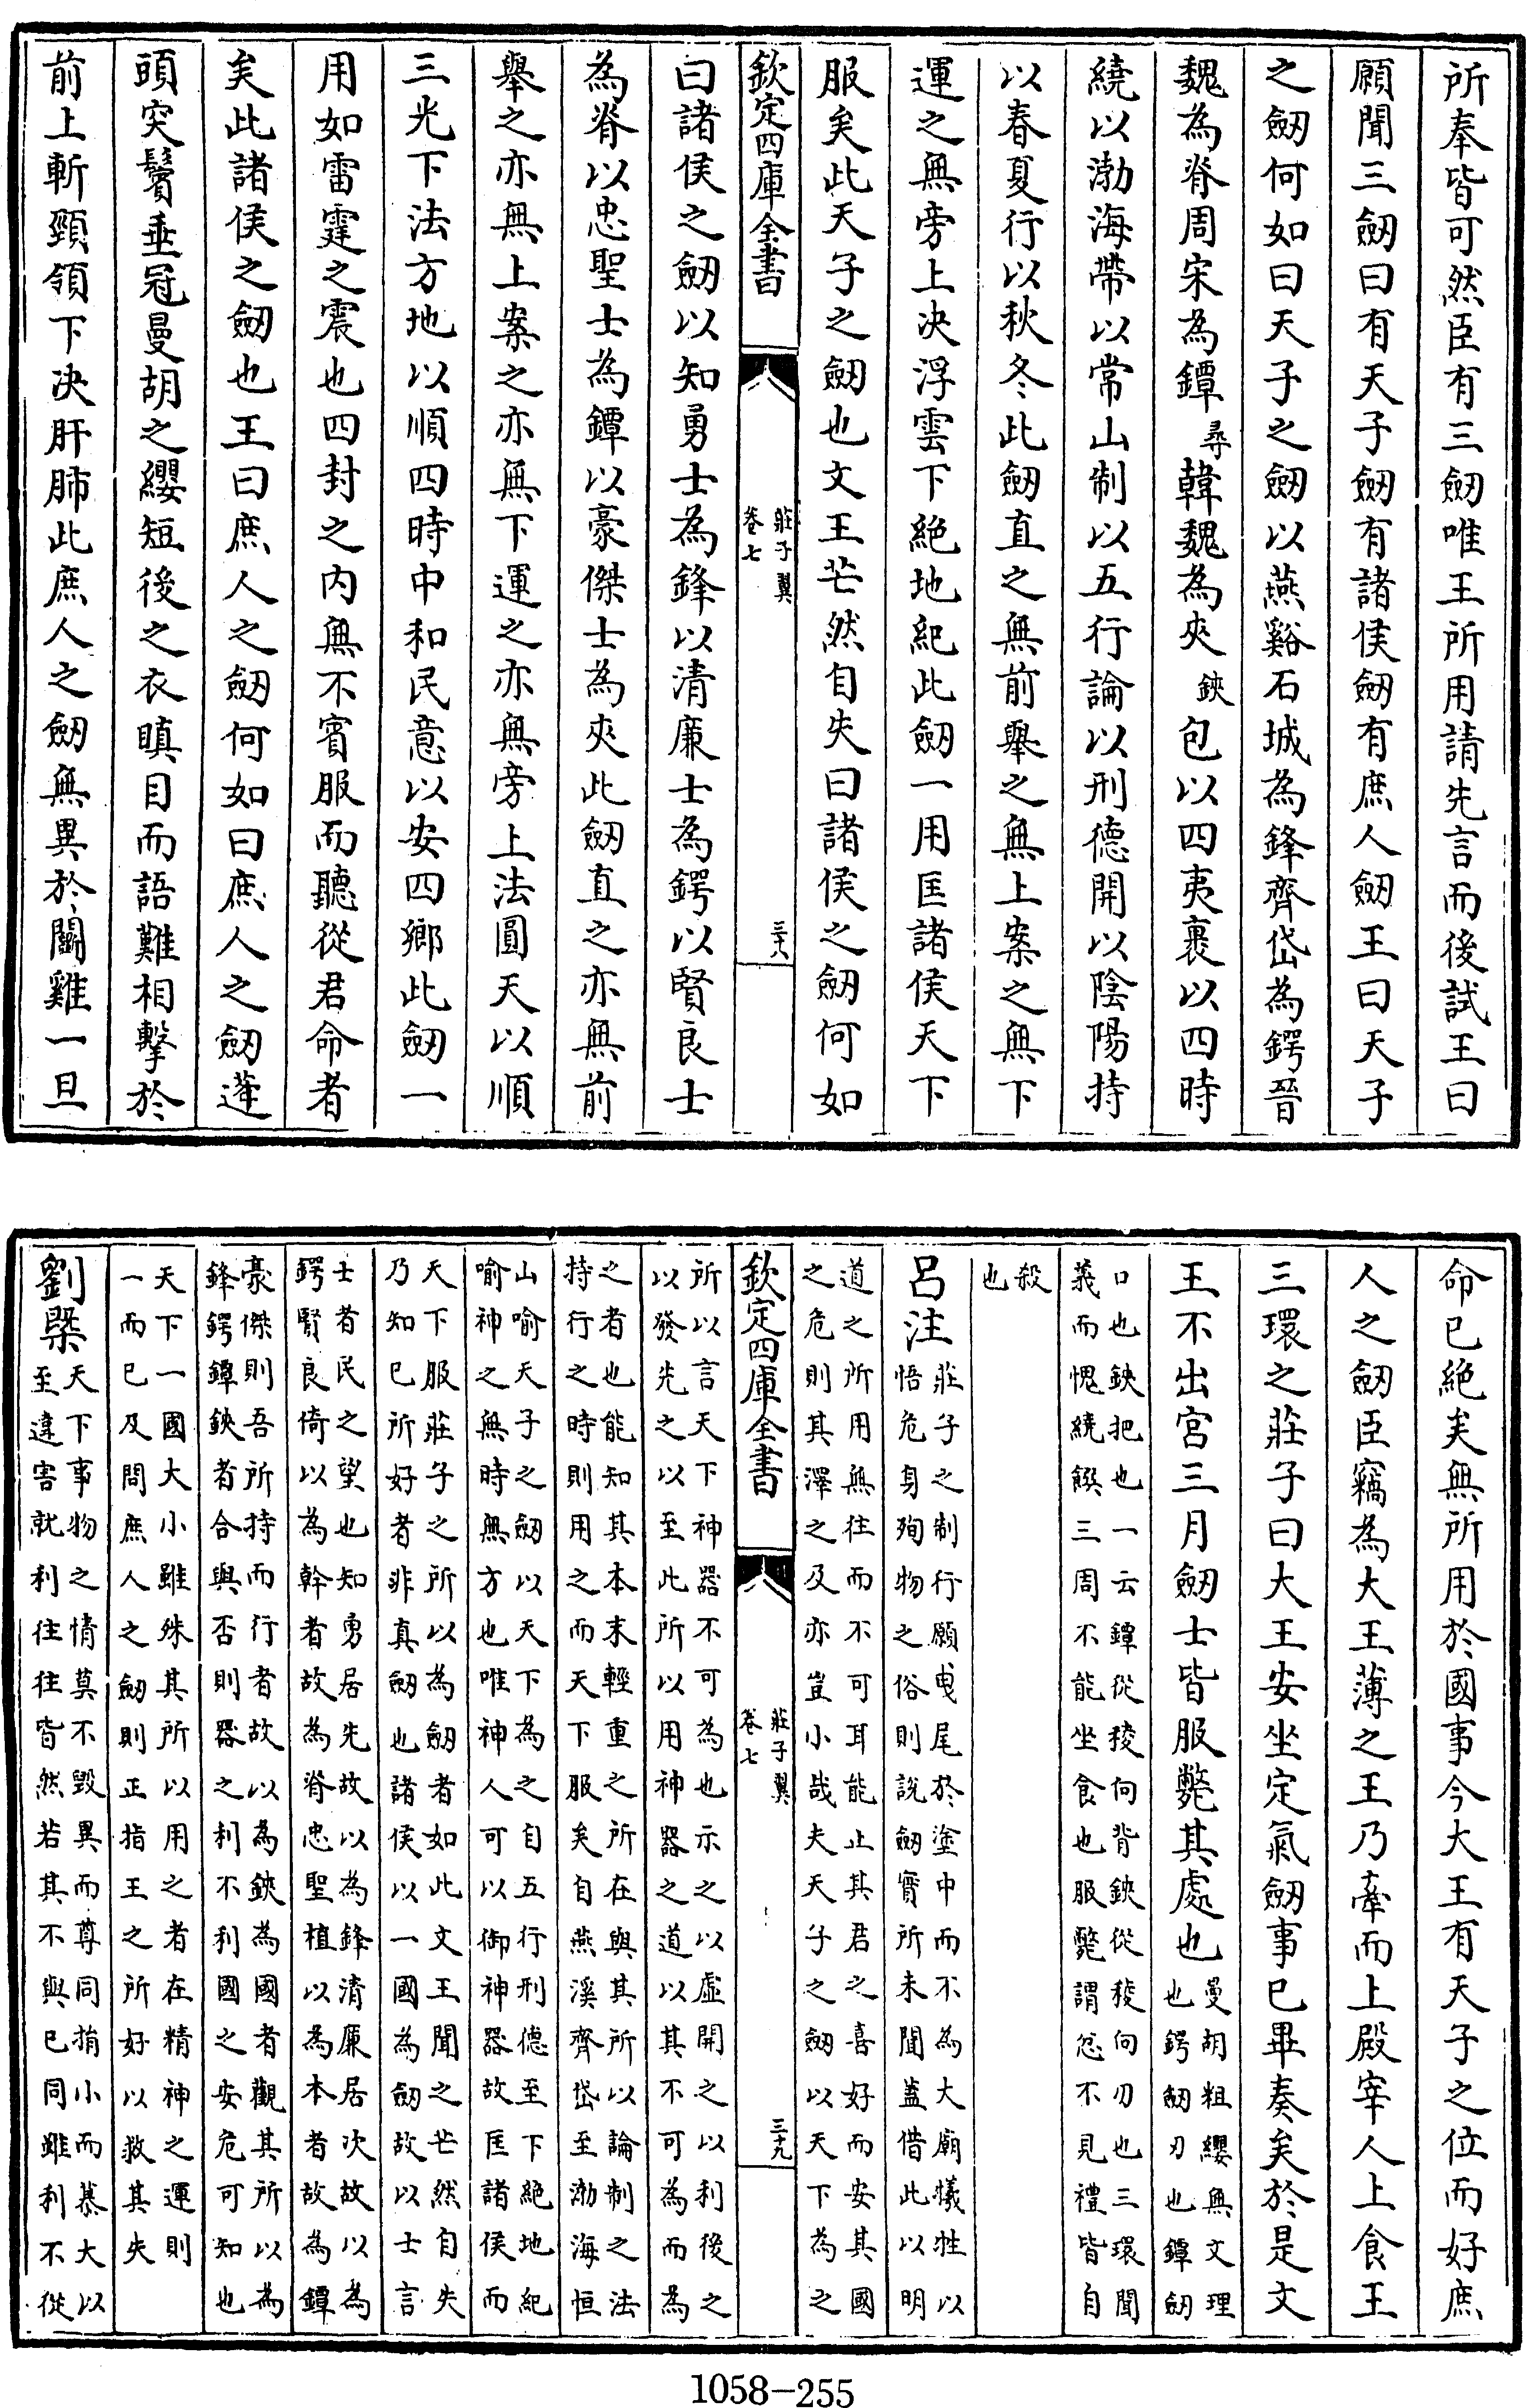 所奉皆可然臣有三劒唯王所用請先言而後試王曰
願聞三劒曰有天子劒有諸侯劒有庶人劒王曰天子
之劒何如曰天子之劒以燕谿石城為鋒齊岱為鍔晉
魏為脊周宋為鐔尋韓魏為夾鋏包以四夷裹以四時
繞以渤海帶以常山制以五行論以刑德開以陰陽持
以春夏行以秋冬此劒直之無前舉之無上案之無下
運之無旁上决浮雲下絶地紀此劒一用匡諸侯天下
服矣此天子之劒也文王芒然自失曰諸侯之劒何如
欽定四庫全書
莊子翼
卷七
三十八
曰諸侯之劒以知勇士為鋒以清廉士為鍔以賢良士
為脊以忠聖士為鐔以豪傑士為夾此劒直之亦無前
舉之亦無上案之亦無下運之亦無旁上法圓天以順
三光下法方地以順四時中和民意以安四鄉此劒一
用如雷霆之震也四封之内無不賓服而聽從君命者
矣此諸侯之劒也王曰庶人之劒何如曰庶人之劒蓬
頭突鬢垂冠曼胡之纓短後之衣瞋目而語難相擊於
前上斬頸領下决肝肺此庶人之劒無異於鬭雞一旦
命已絶矣無所用於國事今大王有天子之位而好庶
人之劒臣竊為大王薄之王乃牽而上殿宰人上食王
三環之莊子曰大王安坐定氣劒事已畢奏矣於是文
王不出宫三月劒士皆服斃其處也
曼胡粗纓無文理
也鍔劒刃也鐔劒
口也鋏把也一云鐔從稜向背鋏從稜向刃也三環聞
義而愧繞饌三周不能坐食也服斃謂忿不見禮皆自
殺
也
吕注
莊子之制行願曳尾於塗中而不為大廟犧牲以
悟危身殉物之俗則説劒實所未聞蓋借此以明
道之所用無往而不可耳能止其君之喜好而安其國
之危則其澤之及亦豈小哉夫天子之劒以天下為之
欽定四庫全書
莊子翼
卷七
三十九
所以言天下神器不可為也示之以虚開之以利後之
以發先之以至此所以用神器之道以其不可為而為
之者也能知其本末輕重之所在與其所以論制之法
持行之時則用之而天下服矣自燕溪齊岱至渤海恒
山喻天子之劒以天下為之自五行刑德至下絶地紀
喻神之無時無方也唯神人可以御神器故匡諸侯而
天下服莊子之所以為劒者如此文王聞之芒然自失
乃知已所好者非真劒也諸侯以一國為劒故以士言
士者民之望也知勇居先故以為鋒清廉居次故以為
鍔賢良倚以為幹者故為脊忠聖植以為本者故為鐔
豪傑則吾所持而行者故以為鋏為國者觀其所以為
鋒鍔鐔鋏者合與否則器之利不利國之安危可知也
天下一國大小雖殊其所以用之者在精神之運則
一而已及問庶人之劒則正指王之所好以救其失
劉槩
天下事物之情莫不毁異而尊同掮小而慕大以
至違害就利往往皆然若其不與已同雖利不從
1058-255